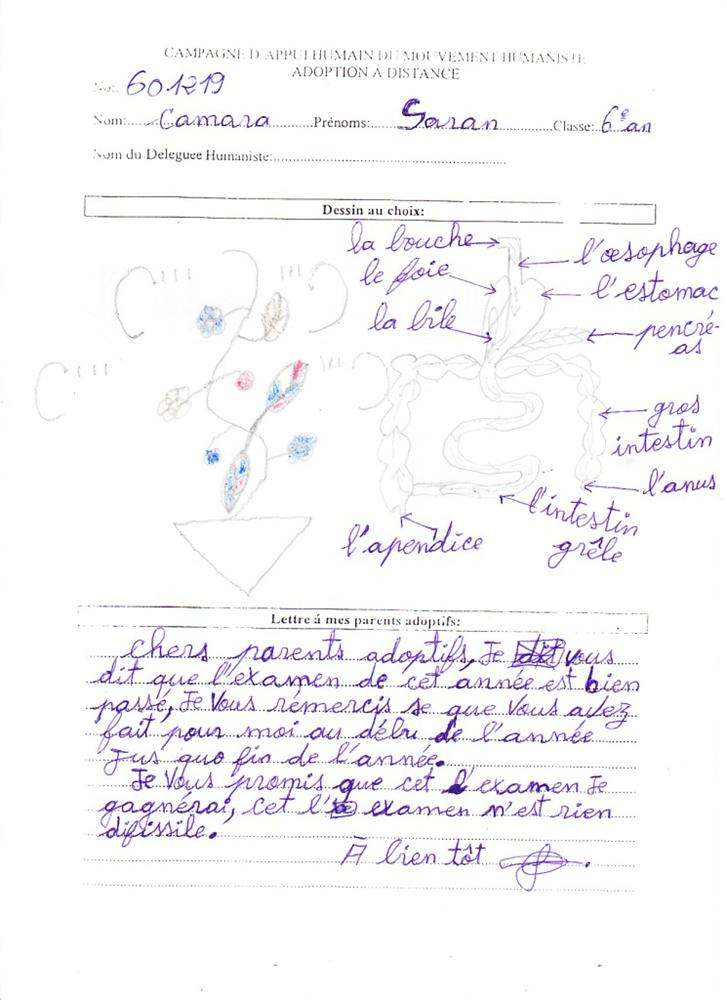 CAMPAGNE D'APPUI HUMAIN DU MOUVEMENT HUMANISTE
ADOPTION À DISTANCE
No:. 601219
Nom: Camara Prénoms: Saran Classe: 6e an
Nom du Deleguee Humaniste:
Dessin au choix:
la bouche
l'œsophage
le foie
l'estomac
la bile
pencré-
as
gros
intestin
l'anus
l'intestin
grêle
l'apendice
Lettre á mes parents adoptifs:
Chers parents adoptifs, Je vous
dit que l'examen de cet année est bien
passé, Je Vous rémercis se que Vous avez
fait pour moi au débu de l'année
Jus quo fin de l'année.
Je Vous promis que cet l'examen Je
gagnérai, cet l' examen n'est rien
difissile.
À bien tôt